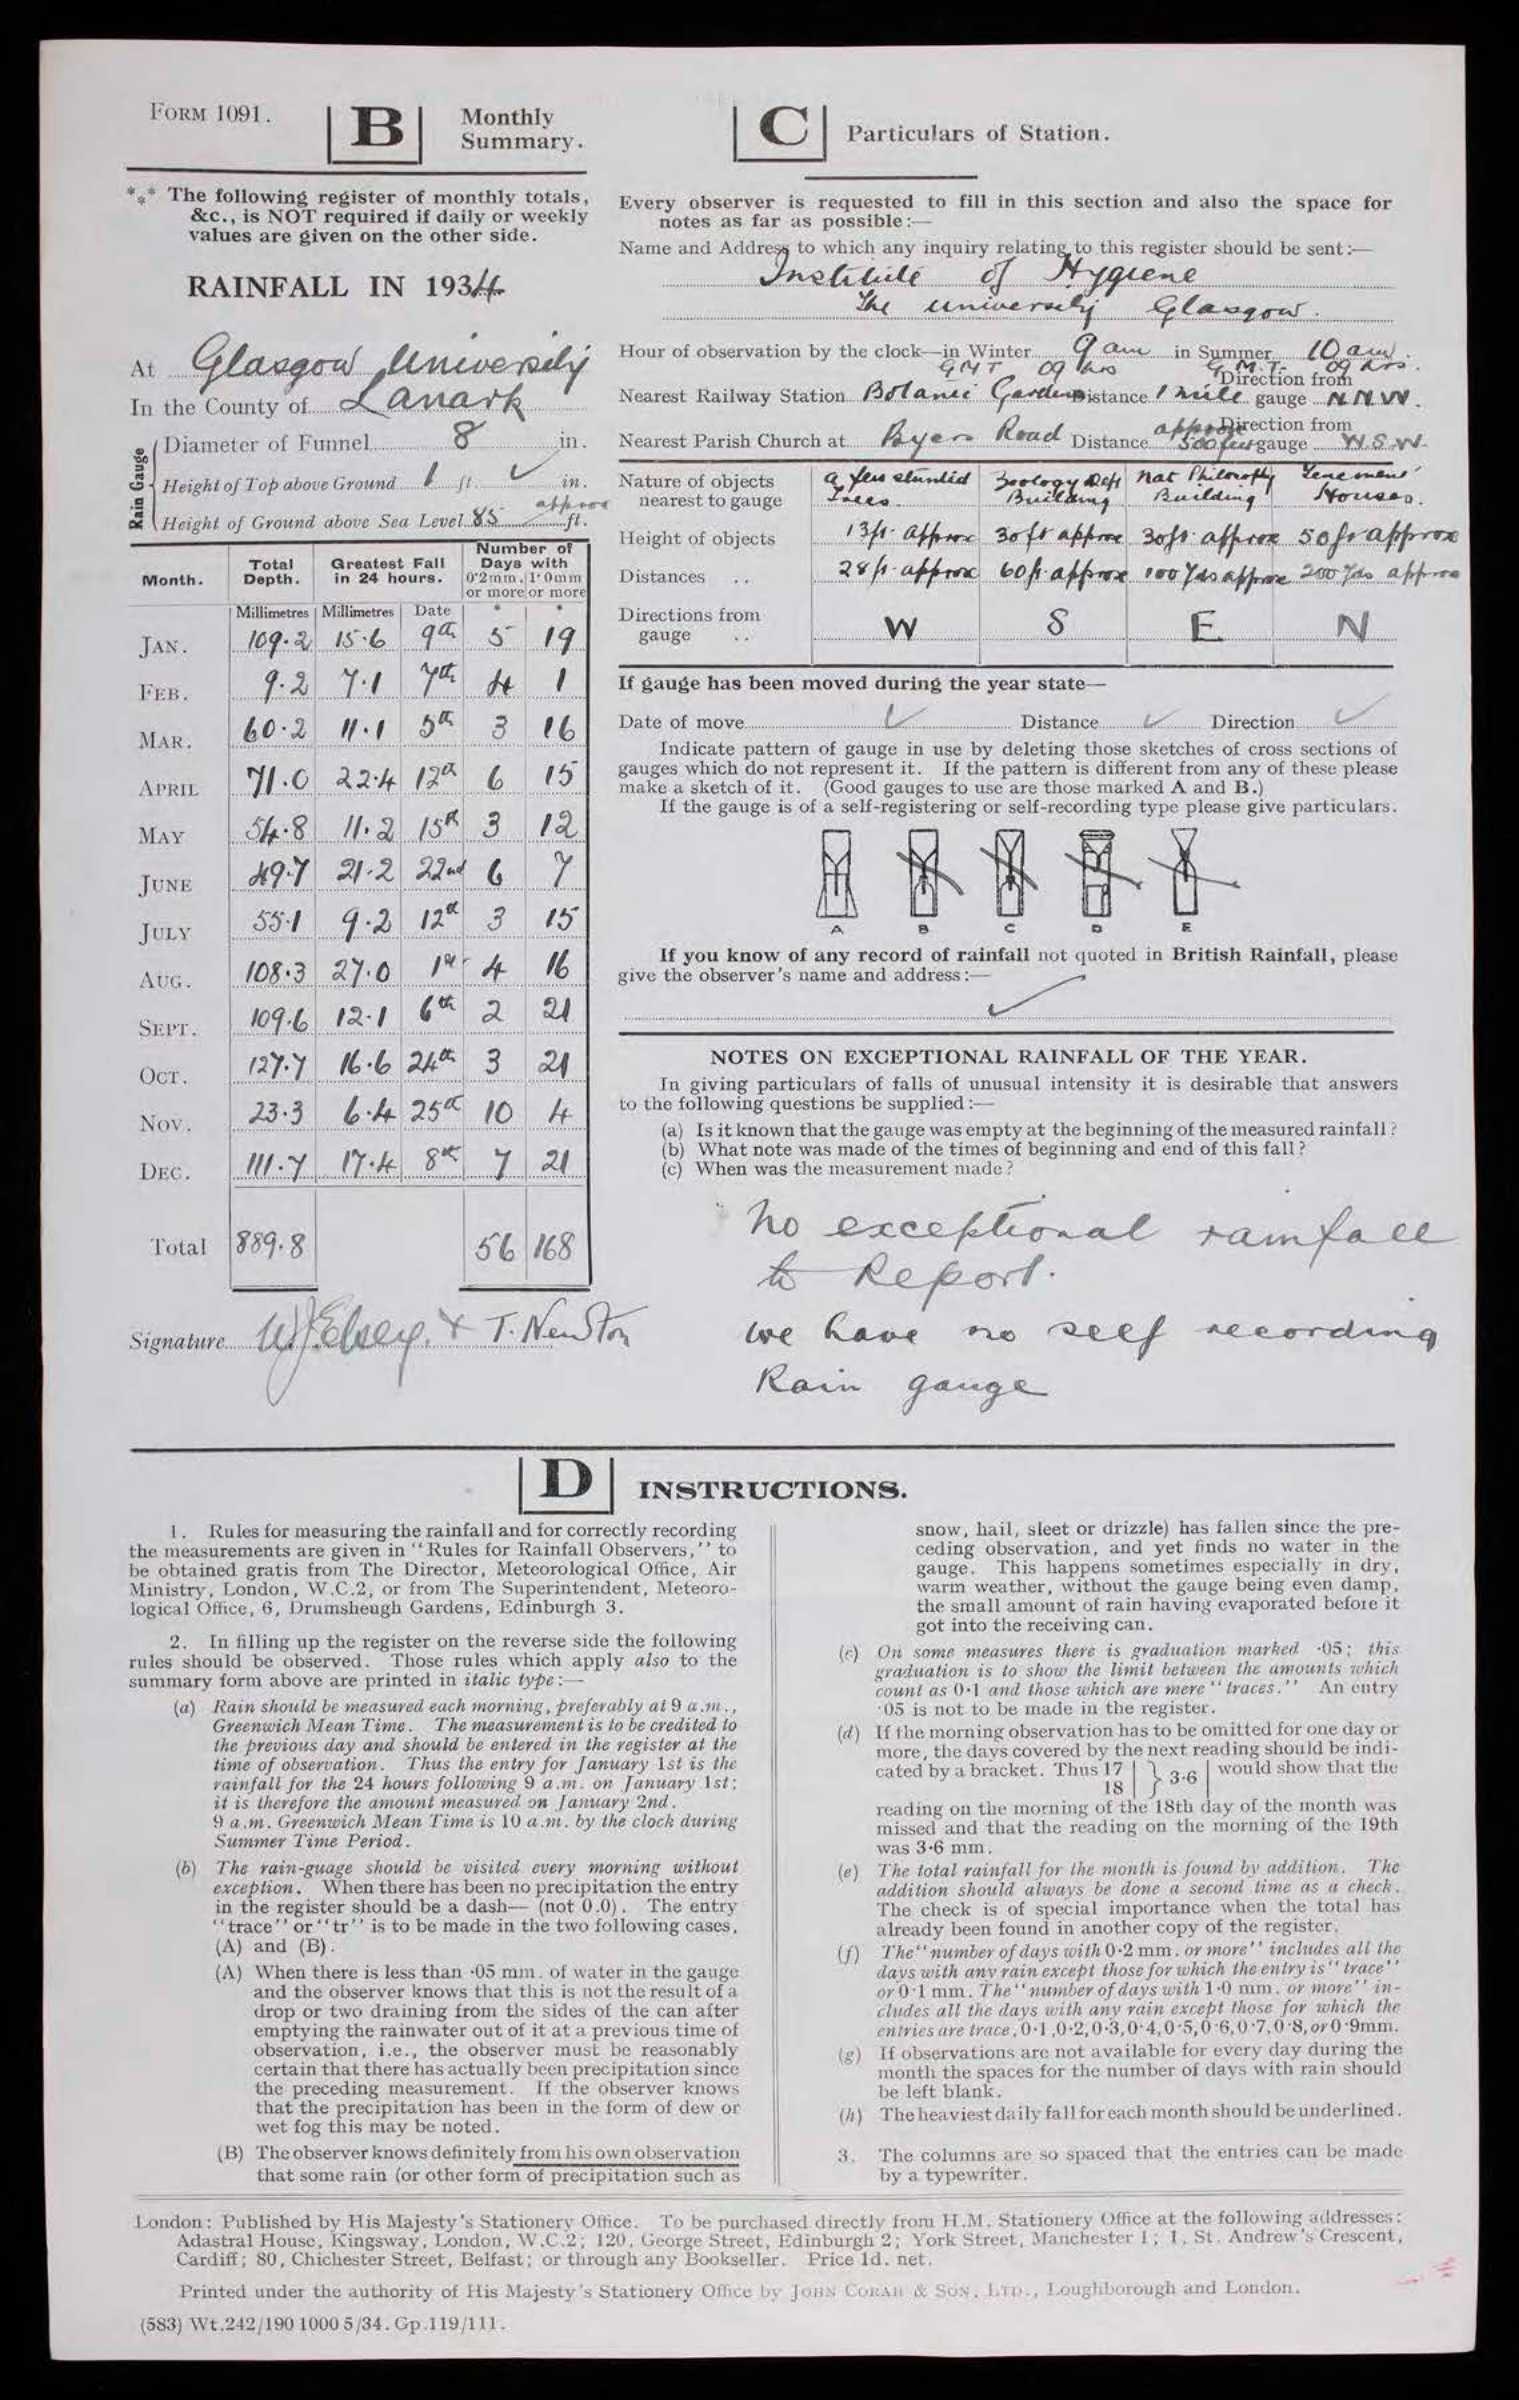 FORM 1091.
B Monthly Summary.
*** The following register of monthly totals,
&c., is NOT required if daily or weekly
values are given on the other side.
RAINFALL IN 1934
At Glasgow University
In the County of Lanark
Rain Gauge
Diameter of Funnel 8 in.
Height of Top above Ground 1 ft. in.
Height of Ground above Sea Level 85 approx ft.
Month. Total Depth. Greatest Fall in 24 hours. Number of Days with
0·2mm. or more 1·0mm or more
Millimetres Millimetres Date * *
JAN. 109.2 15.6 9th 5 19
FEB. 9.2 7.1 7th 4 1
MAR. 60.2 11.1 5th 3 16
APRIL 71.0 22.4 12th 6 15
MAY 54.8 11.2 15th 3 12
JUNE 49.7 21.2 22nd 6 7
JULY 55.1 9.2 12th 3 15
AUG. 108.3 27.0 1st 4 16
SEPT. 109.6 12.1 6th 2 21
OCT. 127.7 16.6 24th 3 21
NOV. 23.3 6.4 25th 10 4
DEC. 111.7 17.4 8th 7 21
Total 889.8 56 168
Signature W.J. Elsey. & T. Newton
C Particulars of Station.
Every observer is requested to fill in this section and also the space for
notes as far as possible:—
Name and Address to which any inquiry relating to this register should be sent:—
Institute of Hygiene
The University Glasgow.
Hour of observation by the clock—in Winter 9 am in Summer 10 am.
GMT 09 hrs G.M.T. 09 hrs.
Nearest Railway Station Botanic Gardens Distance 1 mile Direction from gauge NNW.
Nearest Parish Church at Byers Road Distance approx 500 Direction from gauge W.S.W.
Nature of objects nearest to gauge a few stunted Trees. Zoology Dept Building Nat Philosophy Building Tenement Houses.
Height of objects 13ft. approx 30ft approx 30ft. approx 50ft approx
Distances .. 28ft. approx 60ft. approx 100 yds approx 200 yds approx
Directions from gauge .. W S E N
If gauge has been moved during the year state—
Date of move Distance Direction
Indicate pattern of gauge in use by deleting those sketches of cross sections of
gauges which do not represent it. If the pattern is different from any of these please
make a sketch of it. (Good gauges to use are those marked A and B.)
If the gauge is of a self-registering or self-recording type please give particulars.
A B C D E
If you know of any record of rainfall not quoted in British Rainfall, please
give the observer's name and address:—
NOTES ON EXCEPTIONAL RAINFALL OF THE YEAR.
In giving particulars of falls of unusual intensity it is desirable that answers
to the following questions be supplied:—
(a) Is it known that the gauge was empty at the beginning of the measured rainfall?
(b) What note was made of the times of beginning and end of this fall?
(c) When was the measurement made?
No exceptional rainfall
to Report.
we have no self recording
Rain gauge
D INSTRUCTIONS.
1. Rules for measuring the rainfall and for correctly recording
the measurements are given in "Rules for Rainfall Observers," to
be obtained gratis from The Director, Meteorological Office, Air
Ministry, London, W.C.2, or from The Superintendent, Meteoro-
logical Office, 6, Drumsheugh Gardens, Edinburgh 3.
2. In filling up the register on the reverse side the following
rules should be observed. Those rules which apply also to the
summary form above are printed in italic type:—
(a) Rain should be measured each morning, preferably at 9 a.m.,
Greenwich Mean Time. The measurement is to be credited to
the previous day and should be entered in the register at the
time of observation. Thus the entry for January 1st is the
rainfall for the 24 hours following 9 a.m. on January 1st;
it is therefore the amount measured on January 2nd.
9 a.m. Greenwich Mean Time is 10 a.m. by the clock during
Summer Time Period.
(b) The rain-guage should be visited every morning without
exception. When there has been no precipitation the entry
in the register should be a dash— (not 0.0). The entry
"trace" or "tr" is to be made in the two following cases,
(A) and (B).
(A) When there is less than ·05 mm. of water in the gauge
and the observer knows that this is not the result of a
drop or two draining from the sides of the can after
emptying the rainwater out of it at a previous time of
observation, i.e., the observer must be reasonably
certain that there has actually been precipitation since
the preceding measurement. If the observer knows
that the precipitation has been in the form of dew or
wet fog this may be noted.
(B) The observer knows definitely from his own observation
that some rain (or other form of precipitation such as
snow, hail, sleet or drizzle) has fallen since the pre-
ceding observation, and yet finds no water in the
gauge. This happens sometimes especially in dry,
warm weather, without the gauge being even damp,
the small amount of rain having evaporated before it
got into the receiving can.
(c) On some measures there is graduation marked ·05; this
graduation is to show the limit between the amounts which
count as 0·1 and those which are mere "traces." An entry
·05 is not to be made in the register.
(d) If the morning observation has to be omitted for one day or
more, the days covered by the next reading should be indi-
cated by a bracket. Thus 17 18 } 3·6 would show that the
reading on the morning of the 18th day of the month was
missed and that the reading on the morning of the 19th
was 3·6 mm.
(e) The total rainfall for the month is found by addition. The
addition should always be done a second time as a check.
The check is of special importance when the total has
already been found in another copy of the register.
(f) The "number of days with 0·2 mm. or more" includes all the
days with any rain except those for which the entry is "trace"
or 0·1 mm. The "number of days with 1·0 mm. or more" in-
cludes all the days with any rain except those for which the
entries are trace, 0·1, 0·2, 0·3, 0·4, 0·5, 0·6, 0·7, 0·8, or 0·9mm.
(g) If observations are not available for every day during the
month the spaces for the number of days with rain should
be left blank.
(h) The heaviest daily fall for each month should be underlined.
3. The columns are so spaced that the entries can be made
by a typewriter.
London: Published by His Majesty's Stationery Office. To be purchased directly from H.M. Stationery Office at the following addresses:
Adastral House, Kingsway, London, W.C.2; 120, George Street, Edinburgh 2; York Street, Manchester 1; 1, St. Andrew's Crescent,
Cardiff; 80, Chichester Street, Belfast; or through any Bookseller. Price 1d. net.
Printed under the authority of His Majesty's Stationery Office by JOHN CORAH & SON, LTD., Loughborough and London.
(583) Wt.242/190 1000 5/34. Gp.119/111.